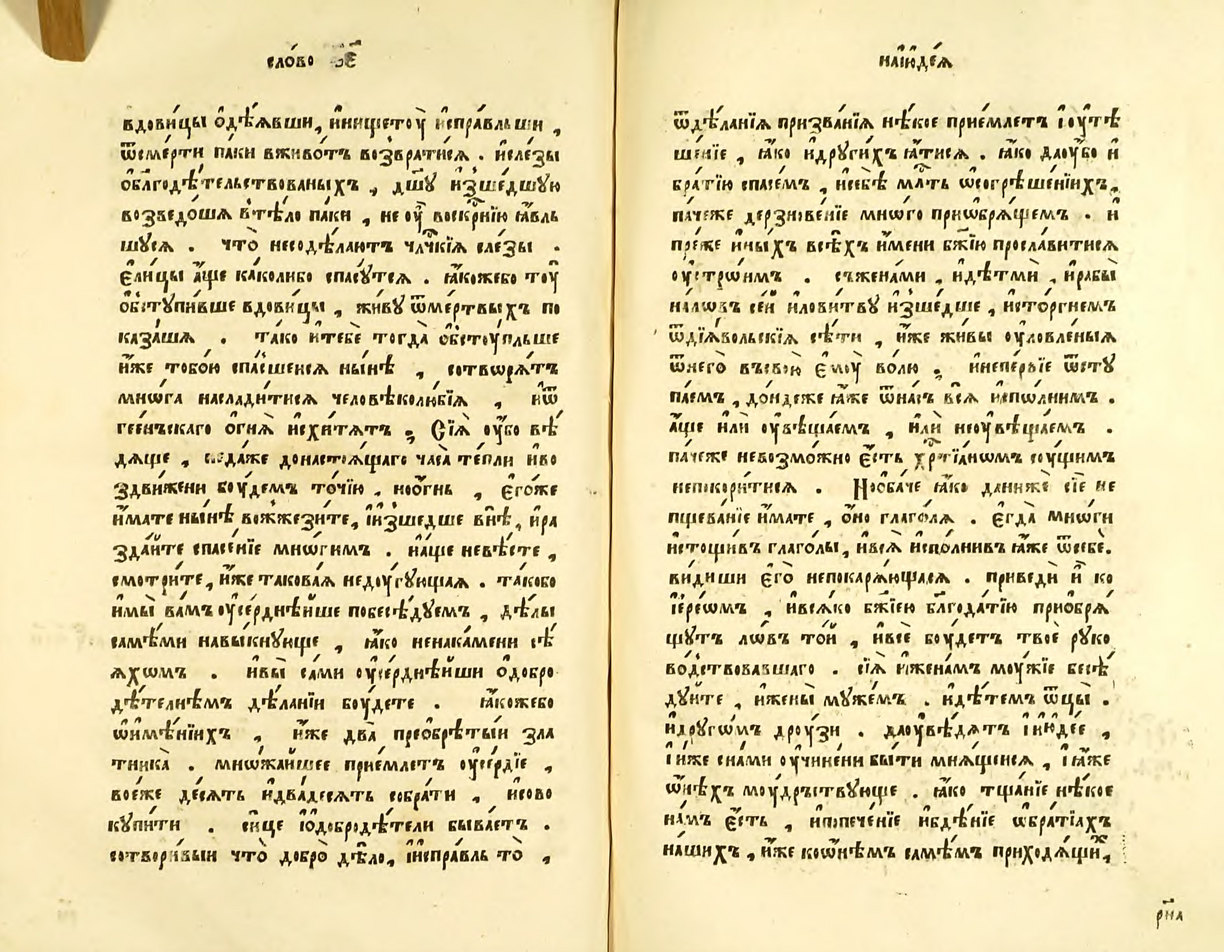 сло́во
вдови́цы ѻ҆дѣ́ѧвши, и҆нищетоу̀ и҆спра́вльши,
ѿсме́рти паки вживо́тъ возврати́сѧ. и҆сле́зы
ѻ҆блгодѣ́тельствованыхъ, дш҃у и҆зше́дшую
возведо́шѧ втѣ́ло па́ки, не оу҆ воскрⷭ҇нїю ꙗ҆́вль
шусѧ. что̀ несодѣ́лаютъ чл҃чкїѧ сле́зы.
є҆ли́цы а҆́ще ка́колибо спасу́тсѧ. ꙗ҆́коже бо тоу̀
ѻ҆бⸯстꙋпи́вше вдови́цы, жи́вꙋ ѿме́ртвыхъ по
каза́шѧ. та́ко и҆тебѐ тогда̀ ѻ҆бⸯстоу́пльше
и҆́же тобо́ю сп҃сшеисѧ ны́нѣ, сотворѧ́тъ
мно́га наслади́тисѧ человѣколю́бїѧ, и҆ѿ
гее́ньскаго ѻ҆гнѧ̀ и҆схи́тѧтъ. Сїѧ̀ оу҆́бо вѣ́
дѧще, недаже донастоѧ́щаго часа те́пли и҆во
здви́жени боу́демъ то́чїю. ноѻ҆́гнь, є҆го́же
и҆́мате ны́нѣ вожжези́те, и҆изше́дше внѣ̀, и҆ра
зда́йте спасе́нїе мно́гимъ. и҆а҆́ще невѣ́сте,
смотри́те, и҆́же такова́ѧ недоу́гꙋющаѧ. та́кобо
и҆мы̀ ва́мъ оу҆се́рднѣйше побесѣ́дуемъ, дѣ́лы
самѣ́ми навы́кнуще, ꙗ҆́ко ненака́мени сѣ́
ѧхѡмъ. и҆вы̀ са́ми оу҆се́рднѣйши ѻ҆добро
дѣ́телнѣмъ дѣ́ланїи боу́дете. ꙗ҆́кожебо
ѡ҆и҆мѣ́нїихъ, и҆́же два̀ преѡбрѣ́тый зла
тника̀. мно́жайшее прїе́млетъ оу҆се́рдїе,
воеже де́сѧть и҆два́десѧть собра́ти, и҆сово
кꙋпи́ти. си́це і҆ѻ҆добродѣ́тели быва́етъ.
сотвори́вый что̀ добро̀ дѣ́ло, и҆испра́вль то̀,
наїꙋде́ѧ
ѿдѣ́ланїѧ призва́нїѧ нѣ́кое прїе́млетъ і҆оутѣ
ше́нїе, ꙗ҆́ко и҆други́хъ ꙗ҆́тисѧ. ꙗ҆́ко даоу҆́бо и҆
бра́тїю спасе́мъ, и҆себѣ̀ млⷭ҇ть ѡ҆согрѣше́нїихъ,
па́чеже дерзнове́нїе мно́го приѡбрѧ́щемъ. и҆
пре́же и҆ны́хъ всѣ́хъ и҆́мени бж҃їю просла́витисѧ
оу҆стро́имъ. съжена́ми, и҆дѣтмѝ, и҆рабы̀
нало́въ се́й и҆лови́твꙋ и҆зше́дше, и҆сто́ргнемъ
ѿдїѧ́вольскїѧ сѣ́ти, и҆́же жи́вы оу҆ло́вленыѧ
ѿнего̀ въсвою̀ є҆моу̀ во́лю. и҆непе́рвїе ѿстꙋ
па́емъ, до́ндеже ꙗ҆́же ѿна́съ всѧ̀ и҆спо́лнимъ.
а҆́ще и҆лѝ оу҆вѣща́емъ, и҆лѝ неоу҆вѣща́емъ.
па́чеже невозмо́жно є҆́сть хрⷭ҇тїа́нѡмъ соу́щимъ
непокори́тисѧ. Но́ѻбаче ꙗ҆́ко даниже сїѐ не
пщева́нїе и҆́мате, ѻ҆но̀ глаго́лѧ. є҆гда̀ мно́ги
и҆стощи́въ глаго́лы, и҆всѧ̀ и҆спо́лнивъ ꙗ҆́же ѿсебѐ.
ви́диши є҆го̀ непокарѧ́ющасѧ. приведѝ и҆ ко
і҆ере́ѡмъ, и҆всѧ́ко бж҃їею блгода́тїю приѡбрѧ́
щутъ ло́въ то́й, и҆всѐ боу́детъ твоѐ рꙋко
во́дствовавшаго. сїѧ̀ и҆жена́мъ моу́жїе бесѣ́
дуйте, и҆жены̀ му́жемъ. и҆дѣ́темъ ѿцы̀.
и҆дрꙋгѡ́мъ дрꙋ́зи. даоувѣ́дѧтъ і҆їꙋде́е,
і҆и҆же сна́ми оу҆чине́ни бы́ти мнѧ́щеисѧ, і҆ꙗ҆́же
ѡ҆нѣ́хъ моу́дръствꙋюще. ꙗ҆́ко тща́нїе нѣ́кое
на́мъ є҆́сть, и҆попече́нїе и҆бдѣ́нїе ѡ҆бра́тїахъ
на́шихъ, и҆́же коѡ҆нѣ́мъ самѣ́мъ приходѧ́щиⷯ,
рн҃а